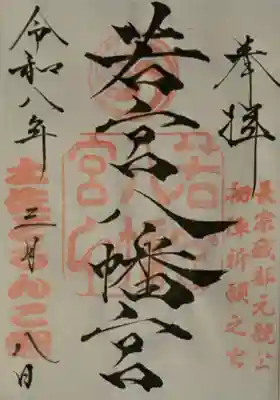 奉拝
長宗我部元親公
初陣祈願之宮
若宮八幡宮
若宮八幡宮
令和八年
三月八日